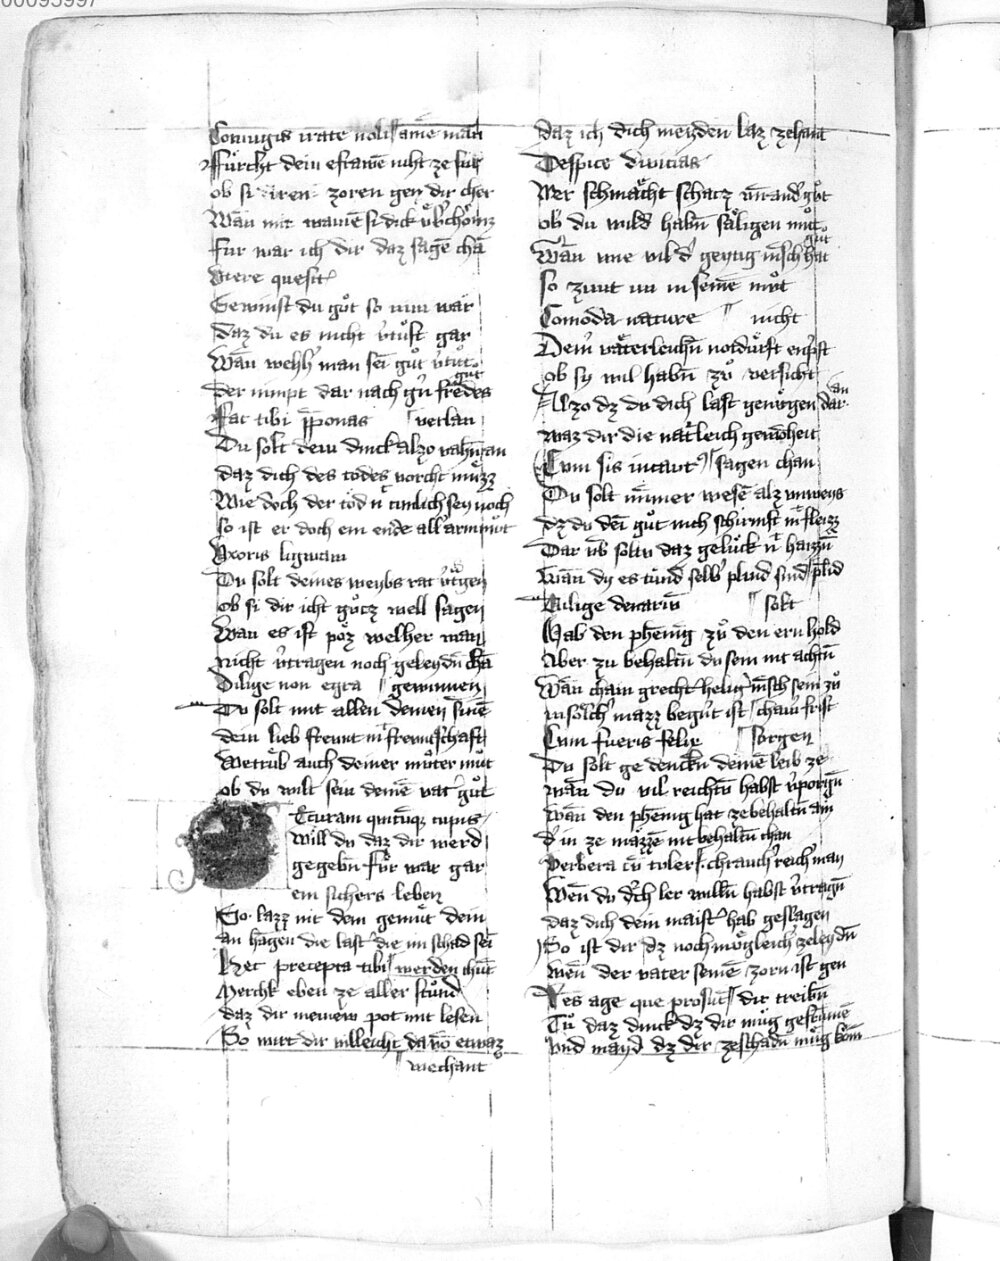 00095997
Coniugis irate noli ame man
Fürcht dein efrawē nicht ze sur
ob si iren zoren gen dir cher
Wān mit
fur war ich dir daz sagē chā
Vtere quesit
Gewinst du gůt so nim war
daz du es nicht vtůst gar
Wān welh' man sei gůt vtůt
der nimpt dar nach gn̄ fredes gůt
Fac tibi p̄ponas verlan
Du solt dein dinck alzo vahn̄ an
daz dich des todes vorcht müzz
Wie doch der tod n timlich sey noch
so ist er doch ein ende all' armmůt
Vxoris ligwam
Du solt deines weybs rat v̄tgen
ob si dir icht gůtz well sagen
Wan es ist pöz welher man
nicht v̄tragen noch geleydn̄ chā
Dilige non egra gewinnen
Du solt mit allen deinen sinē
dein lieb freunt mit freuntschaft
Betrüb auch deiner můter můt
ob du wilt sein deinē vat' gůt
Tcuram quicūq; cupis
Will du daz dir werd
gegebn̄ für war gar
ein sichers leben
So lazz nit dein gemüt dein
an hāgen die last' die im schad sei
Hec precepta tibi werden chūt
Merchk eben ze aller stund
daz dir meinew pot mit lesen
So wirt dir villeicht da vō etwaz
wechant
daz ich dich meyden laz zehant
Despice diuicias
Wer schmächt schatz vn̄ and' gůt
ob du wild habn̄ säligen můt
Wān wie vil d' geytig mēsch hat gůt
so zimt im in seinē můt
Comoda nature nicht
Dein' väterleichn̄ notdürft enp̄st
ob sy wil habn̄ zů versicht
Alzo dz du dich last genügen dar an
waz dir die natleich gewoheit
Cum sis incaut' sagen chan
Du solt nimer wesē alz unweys
dz du dei gůt nich schirmst mit fleizz
Dar vb soltu daz gelück n̄ haizzn̄
Wān dy es tund selb' plind sind plid
Dilige denariū solt
Hab den phēnig zů den ern hold
Aber zu behaltn̄ du sein nit achtn̄
Wān chain grecht' helig' mēsch sein zů
in sölch' mazz begirt ist chain frist
Cum fueris felix sorgen
Du solt gedenckn̄ deinē leib ze
wān du vil reichtū habst v̄porgn̄
Wān den phēnig hat ze behaltn̄ ain
d' in ze mäzzē nit behaltn̄ chan
Verbera cū tuler' chranch' reich' man
Wen du d'ch ler willn̄ habst v̄tragn̄
daz dich dein maist' hab geslagen
So ist dir dz noch mögleich' zeleydn̄
wen der vater seinē zorn ist gen
Res age que prosūt dir treibn̄
Tů daz dinck dz dir müg gefrümē
vnd mayd dz dir ze schadn̄ müg kom̄